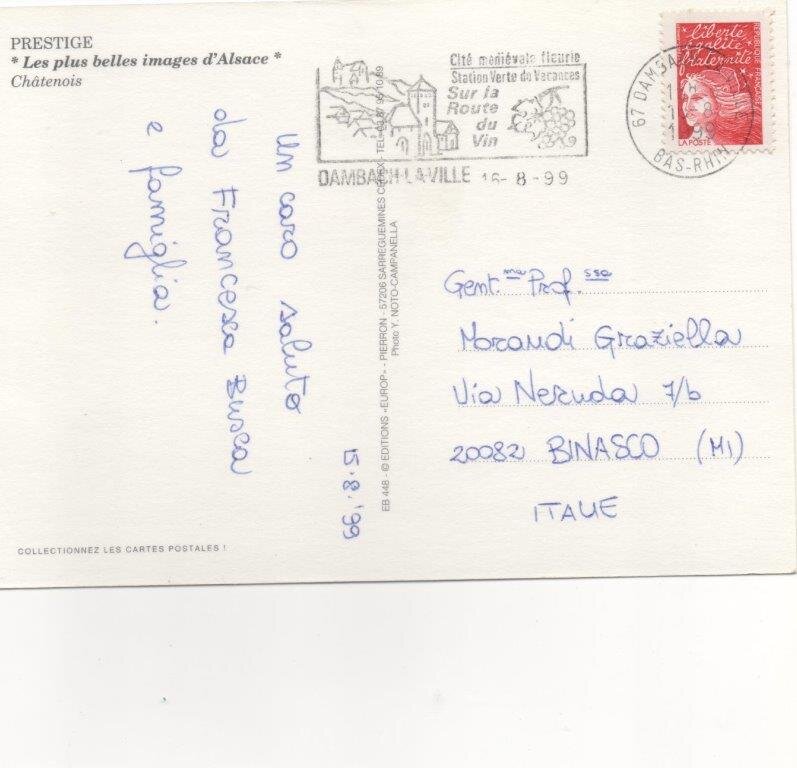 PRESTIGE
* Les plus belles images d'Alsace *
Châtenois
Cité médiévale fleurie
Station Verte de Vacances
Sur la
Route
du
Vin
DAMBACH-LA-VILLE 16-8-99
67 DAMBACH
BAS-RHIN
liberté
égalité
fraternité
RÉPUBLIQUE FRANÇAISE
LA POSTE
un caro saluto
da Francesca Busca
e famiglia.
15.8.'99
EB 448 - © EDITIONS «EUROP» - PIERRON - 57206 SARREGUEMINES CEDEX - TEL.
Photo Y. NOTO-CAMPANELLA
Gent.ma Prof.ssa
Morandi Graziella
Via Neruda 7/b
20082 BINASCO (MI)
ITALIE
COLLECTIONNEZ LES CARTES POSTALES !